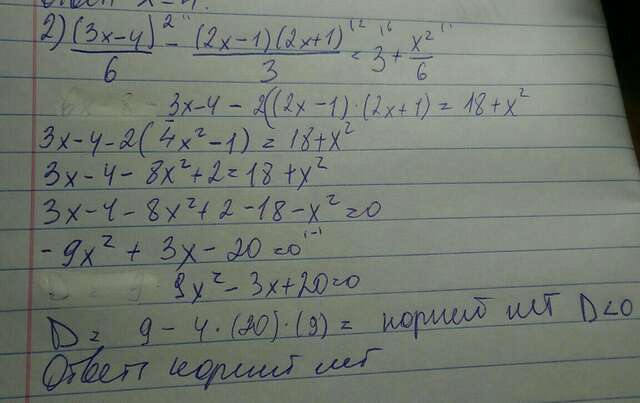 2) (3x-4)²/6 - (2x-1)(2x+1)/3 = 3 + x²/6
3x-4 - 2((2x-1)·(2x+1) = 18+x²
3x-4-2(4x²-1) = 18+x²
3x-4-8x²+2=18+x²
3x-4-8x²+2-18-x²=0
-9x²+3x-20=0 |·-1
9x²-3x+20=0
D = 9-4·(20)·(9) = корней нет D<0
Ответ корней нет